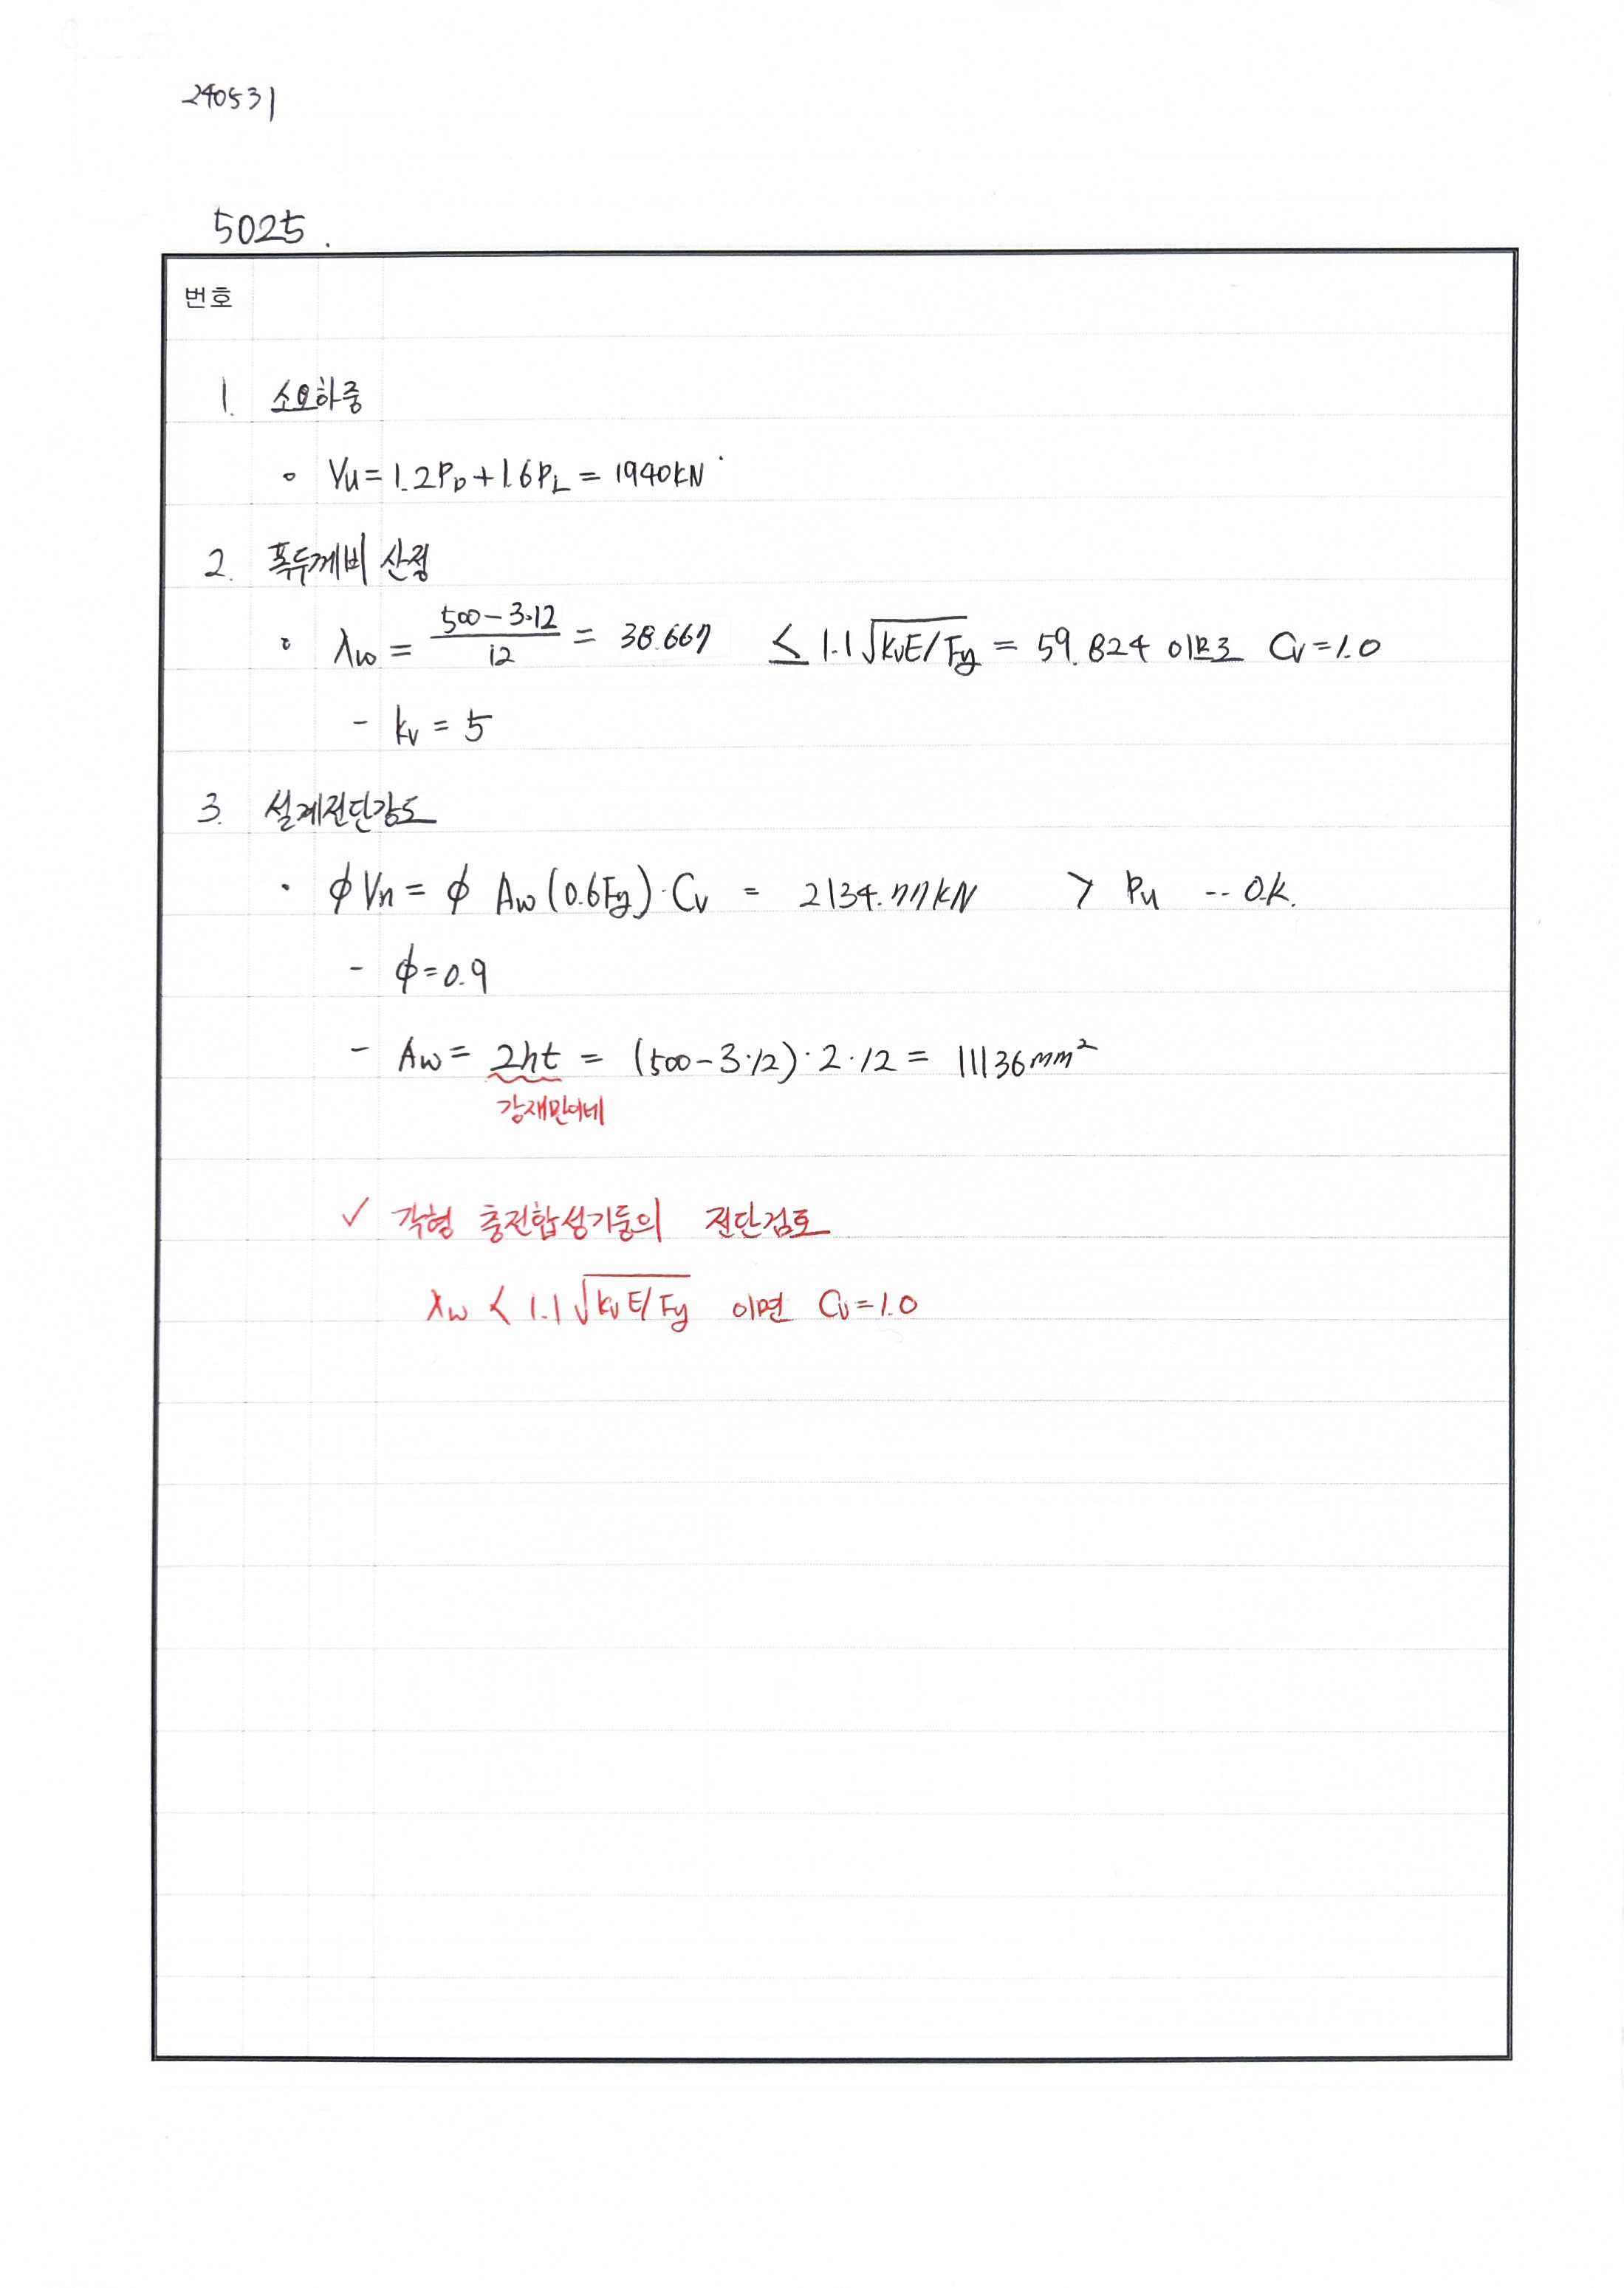 240531
5025.
번호
1. 소요하중
∘ Vu = 1.2PD + 1.6PL = 1940kN
2. 폭두께비 산정
∘ λw = (500 - 3·12)/12 = 38.667 ≤ 1.1√(kvE/Fy) = 59.824 이므로 Cv = 1.0
- kv = 5
3. 설계전단강도
· ϕVn = ϕ Aw (0.6Fy)·Cv = 2134.77kN > Pu -- O.K.
- ϕ = 0.9
- Aw = 2ht = (500 - 3·12)·2·12 = 11136mm²
강재만이네
✓ 각형 충전합성기둥의 전단검토
λw < 1.1√(kvE/Fy) 이면 Cv = 1.0